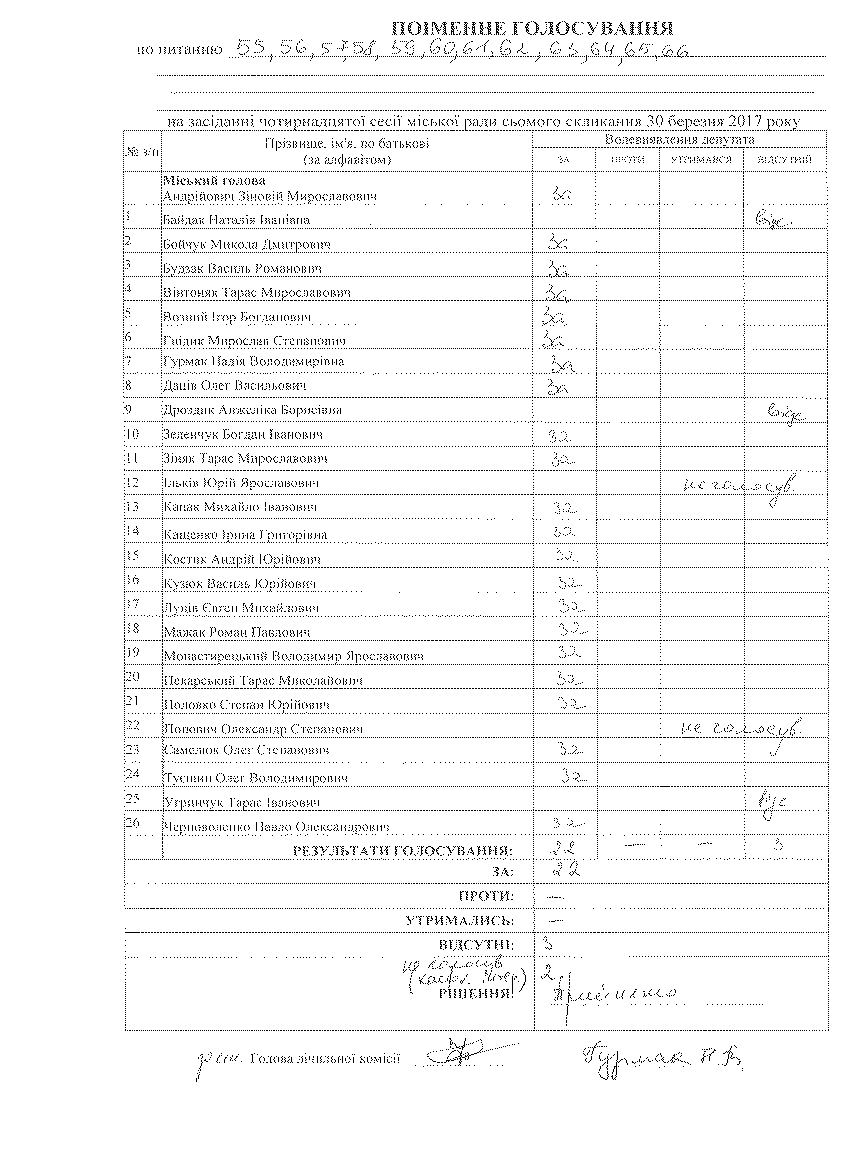 ПОІМЕННЕ ГОЛОСУВАННЯ
по питанню 55, 56, 57, 58, 59, 60, 61, 62, 63, 64, 65, 66
на засіданні чотирнадцятої сесії міської ради сьомого скликання 30 березня 2017 року
№ з/п Прізвище, ім'я, по батькові (за алфавітом) Волевиявлення депутата
ЗА ПРОТИ УТРИМАВСЯ ВІДСУТНІЙ
Міський голова
Андрійович Зіновій Мирославович за
1 Байдак Наталія Іванівна відс.
2 Бойчук Микола Дмитрович за
3 Будзак Василь Романович за
4 Вінтоняк Тарас Мирославович за
5 Возний Ігор Богданович за
6 Гнідик Мирослав Степанович за
7 Гурмак Надія Володимирівна за
8 Даців Олег Васильович за
9 Дроздик Анжеліка Борисівна відс
10 Зеленчук Богдан Іванович за
11 Зіняк Тарас Мирославович за
12 Ільків Юрій Ярославович не голосув.
13 Капак Михайло Іванович за
14 Кащенко Ірина Григорівна за
15 Костик Андрій Юрійович за
16 Кузюк Василь Юрійович за
17 Луців Євген Михайлович за
18 Мажак Роман Павлович за
19 Монастирецький Володимир Ярославович за
20 Пекарський Тарас Миколайович за
21 Половко Степан Юрійович за
22 Попович Олександр Степанович не голосув.
23 Самелюк Олег Степанович за
24 Туєшин Олег Володимирович за
25 Угринчук Тарас Іванович
26 Черноволенко Павло Олександрович за
РЕЗУЛЬТАТИ ГОЛОСУВАННЯ: 22 — — 3
ЗА: 22
ПРОТИ: —
УТРИМАЛИСЬ: —
ВІДСУТНІ: 3
не голосув 2
РІШЕННЯ: Прийнято
Голова лічильної комісії Гурмак Н В